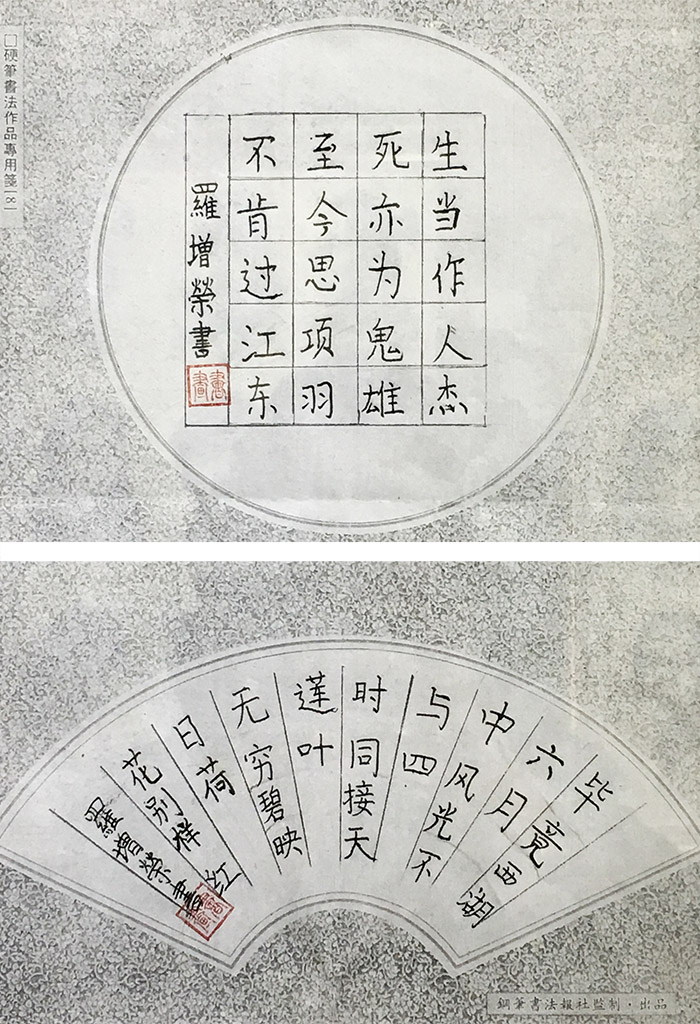 □硬筆書法作品專用箋[8]
生当作人杰
死亦为鬼雄
至今思项羽
不肯过江东
羅增榮書
毕竟西湖
六月
中风光不
与四
时同接天
莲叶
无穷碧映
日荷
花别样红
羅增榮書
鋼筆書法報社監制·出品